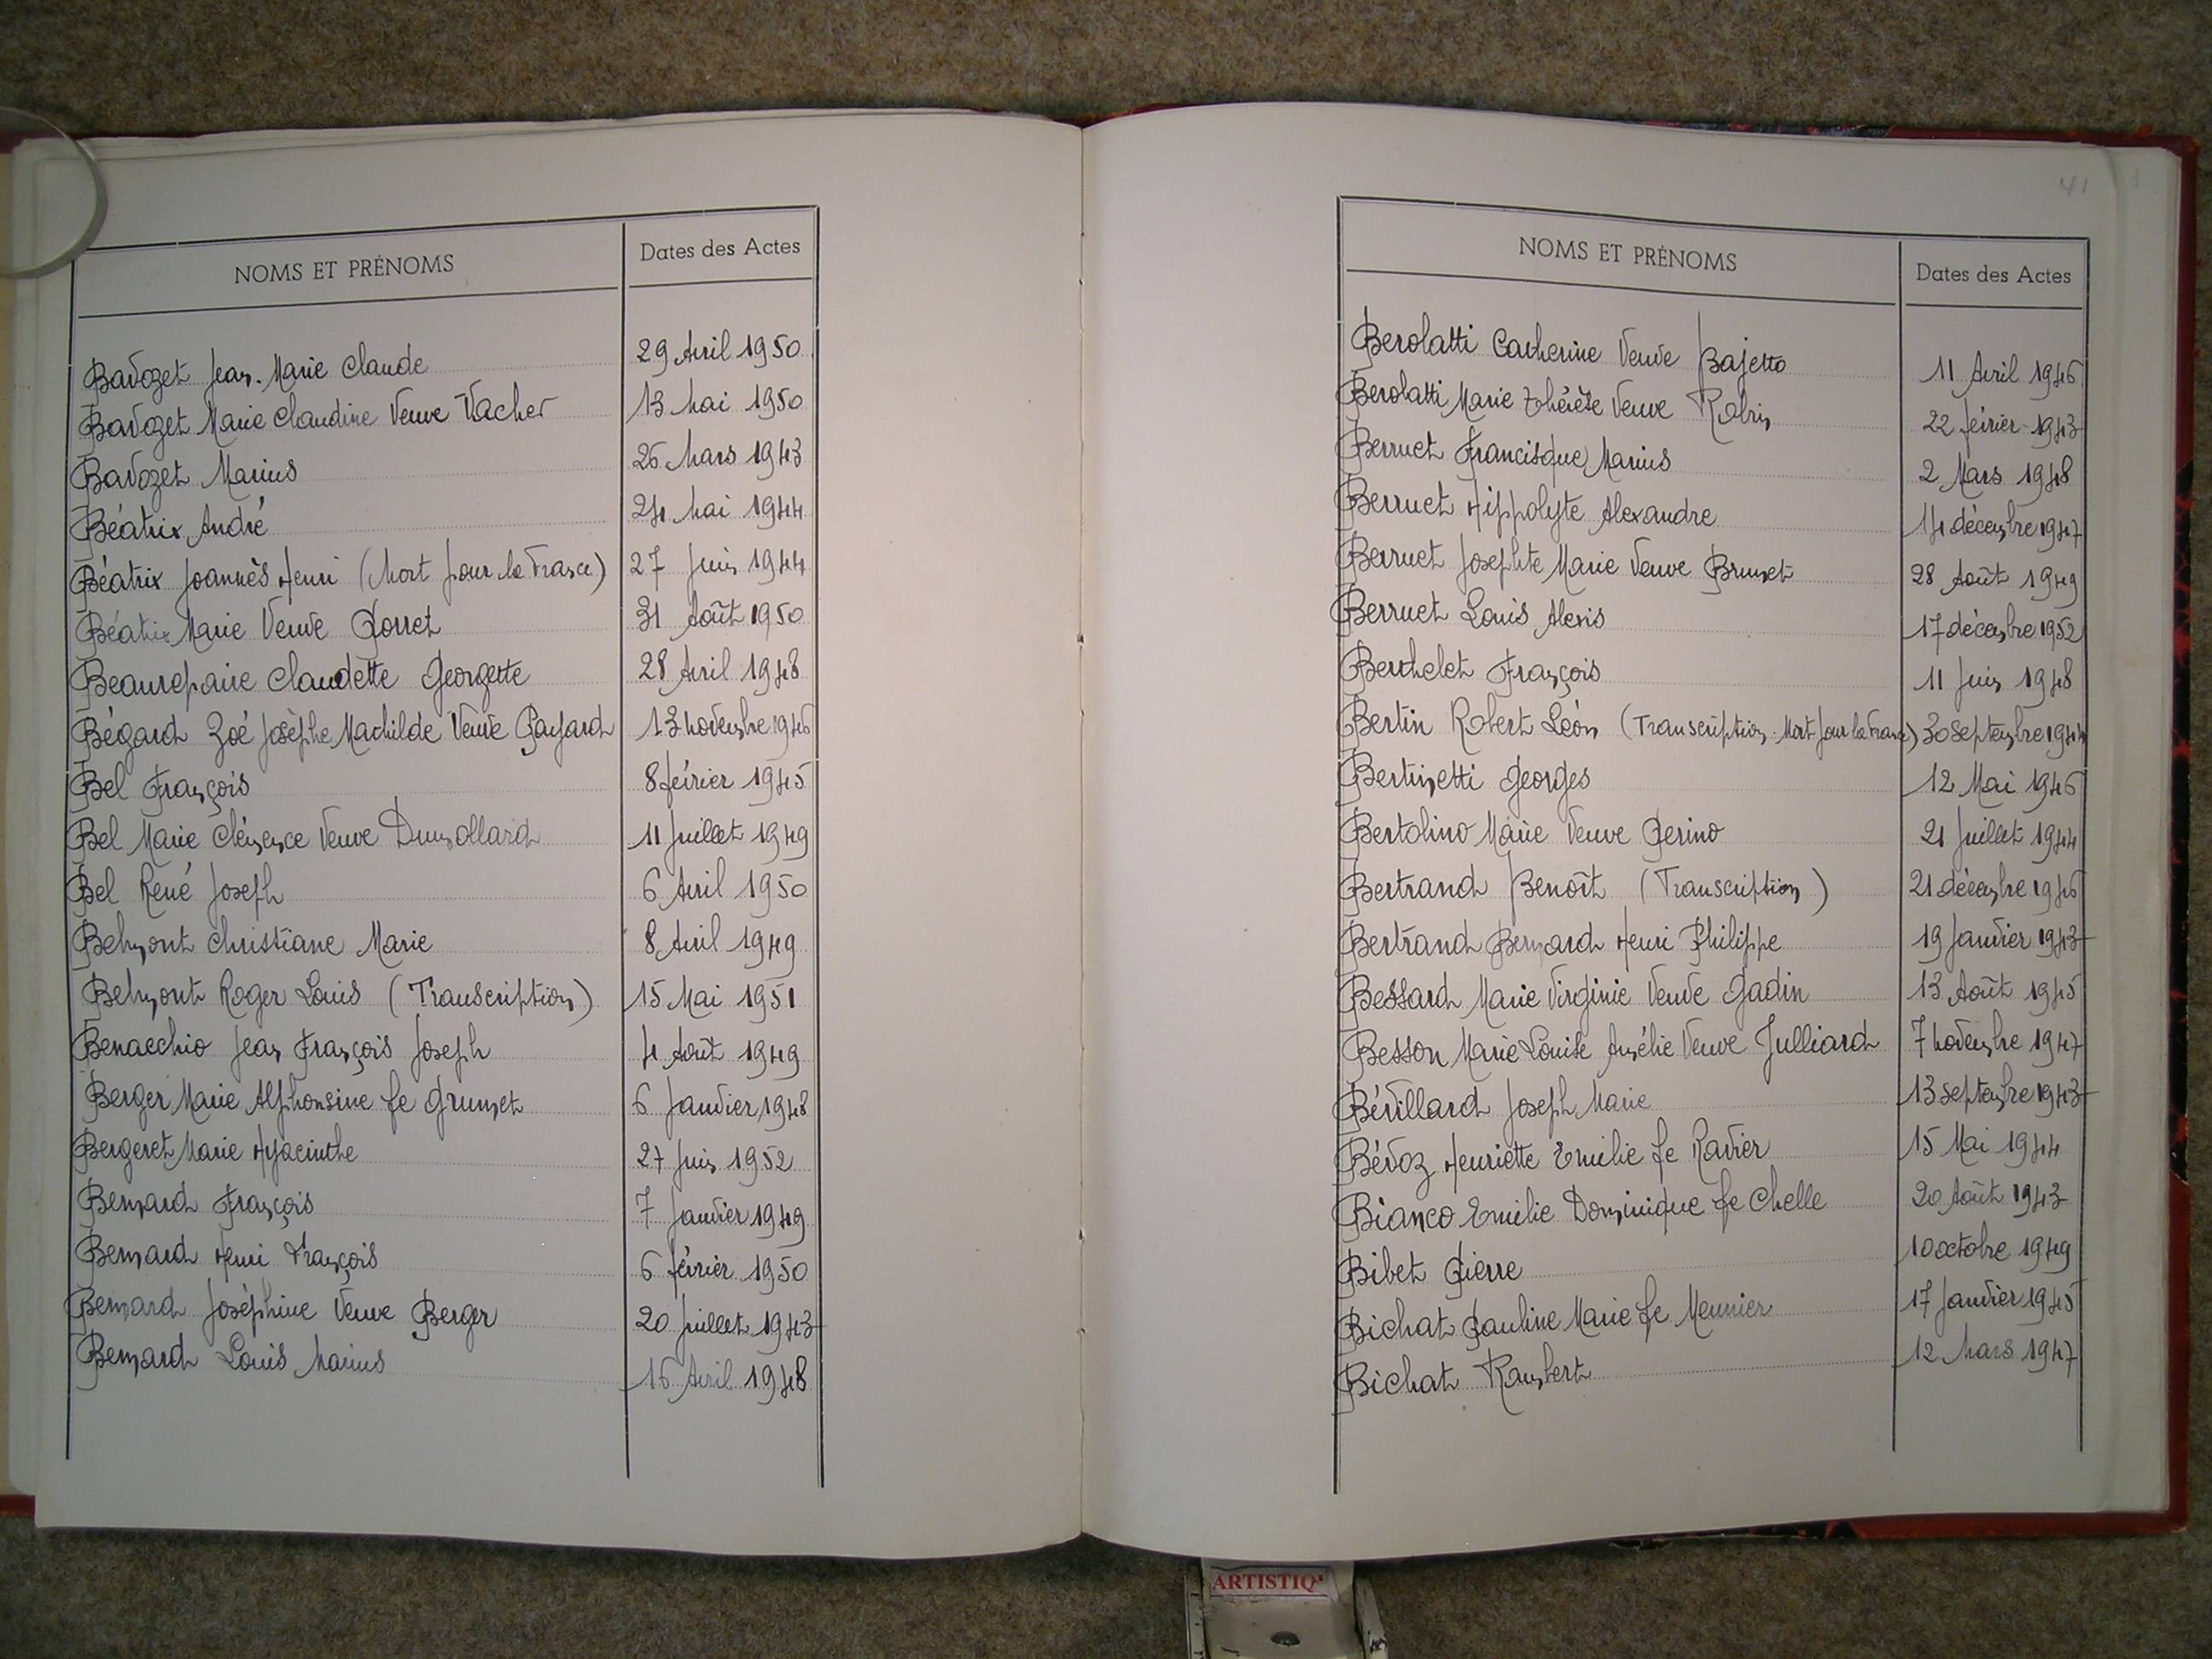 NOMS ET PRÉNOMS Dates des Actes
Bavozet Jean-Marie Claude 29 Avril 1950
Bavozet Marie Claudine Veuve Vacher 13 Mai 1950
Bavozet Marius 26 Mars 1943
Béatrix André 24 Mai 1944
Béatrix Joannès Henri (Mort pour la France) 27 Juin 1944
Béatrix Marie Veuve Porret 31 Août 1950
Beaurepaire Claudette Georgette 28 Avril 1948
Bégard Zoé Josèphe Mathilde Veuve Payard 13 Novembre 1946
Bel François 8 février 1945
Bel Marie Clémence Veuve Dumollard 11 Juillet 1949
Bel René Joseph 6 Avril 1950
Belmont Christiane Marie 8 Avril 1949
Belmont Roger Louis (Transcription) 15 Mai 1951
Benacchio Jean François Joseph 4 Août 1949
Berger Marie Alphonsine fe Grumet 6 Janvier 1948
Bergeret Marie Hyacinthe 27 Juin 1952
Bernard François 7 Janvier 1949
Bernard Henri François 6 février 1950
Bernard Joséphine Veuve Berger 20 Juillet 1943
Bernard Louis Marius 16 Avril 1948
41
NOMS ET PRÉNOMS Dates des Actes
Berolatti Catherine Veuve Bajetto 11 Avril 1946
Berolatti Marie Thérèse Veuve Robin 22 février 1943
Berruet Francisque Marius 2 Mars 1948
Berruet Hippolyte Alexandre 14 décembre 1947
Berruet Josephte Marie Veuve Brunet 28 Août 1949
Berruet Louis Alexis 17 décembre 1952
Berthelet François 11 Juin 1948
Bertin Robert Léon (Transcription-Mort pour la France) 30 Septembre 1944
Bertinetti Georges 12 Mai 1946
Bertolino Marie Veuve Perino 21 Juillet 1944
Bertrand Benoît (Transcription) 21 décembre 1946
Bertrand Bernard Henri Philippe 19 Janvier 1943
Bessard Marie Virginie Veuve Gadin 13 Août 1945
Besson Marie Louise Amélie Veuve Julliard 7 Novembre 1947
Bévillard Joseph Marie 13 septembre 1943
Bévoz Henriette Emilie fe Ravier 15 Mai 1944
Bianco Emilie Dominique fe Chelle 20 Août 1943
Bibet Pierre 10 octobre 1949
Bichat Pauline Marie fe Meunier 17 Janvier 1945
Bichat Rambert 12 Mars 1947
ARTISTIQ